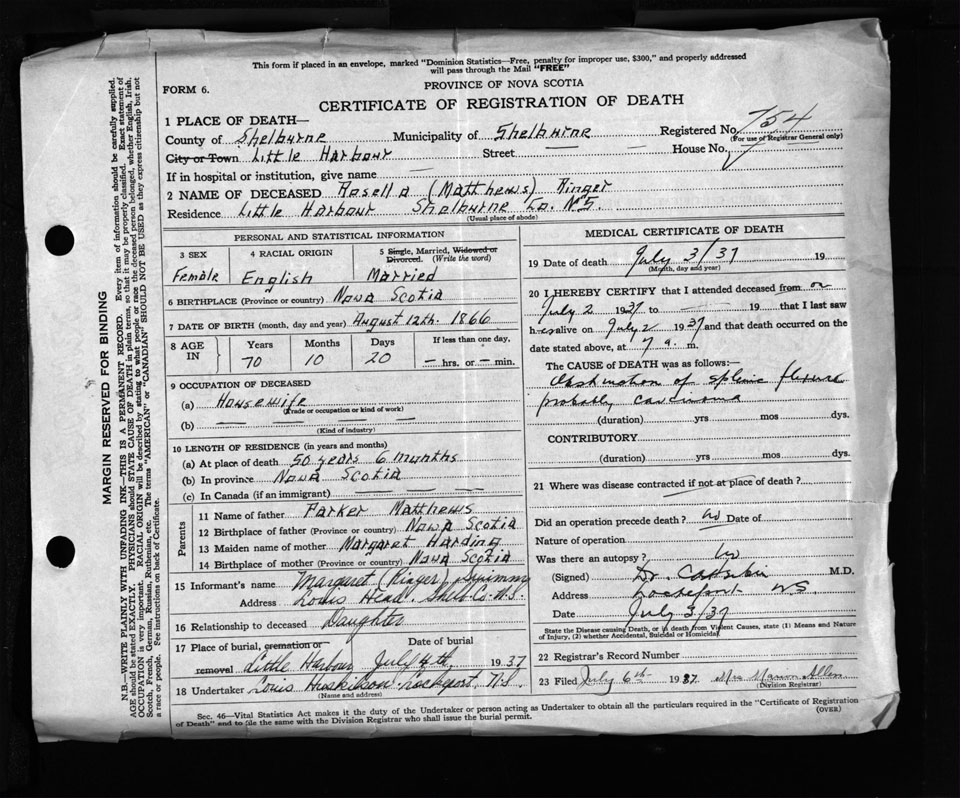 This form if placed in an envelope, marked "Dominion Statistics—Free, penalty for improper use, $300," and properly addressed
will pass through the Mail "FREE"
FORM 6.
PROVINCE OF NOVA SCOTIA
CERTIFICATE OF REGISTRATION OF DEATH
1 PLACE OF DEATH—
County of Shelburne Municipality of Shelburne Registered No. 754
(For use of Registrar General only)
City or Town Little Harbour Street — House No.
If in hospital or institution, give name —
2 NAME OF DECEASED Rosella (Matthews) Ringer
Residence Little Harbour Shelburne Co. N.S.
(Usual place of abode)
PERSONAL AND STATISTICAL INFORMATION
3 SEX 4 RACIAL ORIGIN 5 Single, Married, Widowed or
Divorced. (Write the word)
Female English Married
6 BIRTHPLACE (Province or country) Nova Scotia
7 DATE OF BIRTH (month, day and year) August 12th. 1866
8 AGE IN Years Months Days If less than one day,
70 10 20 — hrs. or — min.
9 OCCUPATION OF DECEASED
(a) Housewife
(Trade or occupation or kind of work)
(b) — — — —
(Kind of industry)
10 LENGTH OF RESIDENCE (in years and months)
(a) At place of death 50 years 6 months
(b) In province Nova Scotia
(c) In Canada (if an immigrant) — —
Parents
11 Name of father Parker Matthews
12 Birthplace of father (Province or country) Nova Scotia
13 Maiden name of mother Margaret Harding
14 Birthplace of mother (Province or country) Nova Scotia
15 Informant's name Margaret (Ringer)
Address Louis Head. Shelb. Co. N.S.
16 Relationship to deceased Daughter
17 Place of burial, cremation or Date of burial
removal Little Harbour July 4th, 1937
18 Undertaker Louis Huskilson Lockeport N.S.
(Name and address)
MEDICAL CERTIFICATE OF DEATH
19 Date of death July 3/37 19
(Month, day and year)
20 I HEREBY CERTIFY that I attended deceased from on
July 2 1937 to — 19 — that I last saw
her alive on July 2 1937 and that death occurred on the
date stated above, at 7 a. m.
The CAUSE OF DEATH was as follows:—
Obstruction of splenic flexure
probably carcinoma
(duration) yrs mos dys.
CONTRIBUTORY
(duration) yrs mos dys.
21 Where was disease contracted if not at place of death?
Did an operation precede death? No Date of
Nature of operation
Was there an autopsy? No
(Signed) Dr. M.D.
Address Lockeport N.S.
Date July 3/37
State the Disease causing Death, or in death from Violent Causes, state (1) Means and Nature
of Injury, (2) whether Accidental, Suicidal or Homicidal.
22 Registrar's Record Number
23 Filed July 6th 1937. Mrs Allen
(Division Registrar)
Sec. 46—Vital Statistics Act makes it the duty of the Undertaker or person acting as Undertaker to obtain all the particulars required in the "Certificate of Registration
of Death" and to file the same with the Division Registrar who shall issue the burial permit. (OVER)
MARGIN RESERVED FOR BINDING
N.B.—WRITE PLAINLY WITH UNFADING INK—THIS IS A PERMANENT RECORD. Every item of information should be carefully supplied.
AGE should be stated EXACTLY. PHYSICIANS should STATE CAUSE OF DEATH in plain terms, so that it may be properly classified. Exact statement of
OCCUPATION is very important. RACIAL ORIGIN will be described by stating to what people or race the deceased person belonged, whether English, Irish,
Scotch, French, German, Russian, Ruthenian, etc. The terms "AMERICAN" or "CANADIAN" SHOULD NOT BE USED as they express citizenship but not
a race or people. See instructions on back of Certificate.